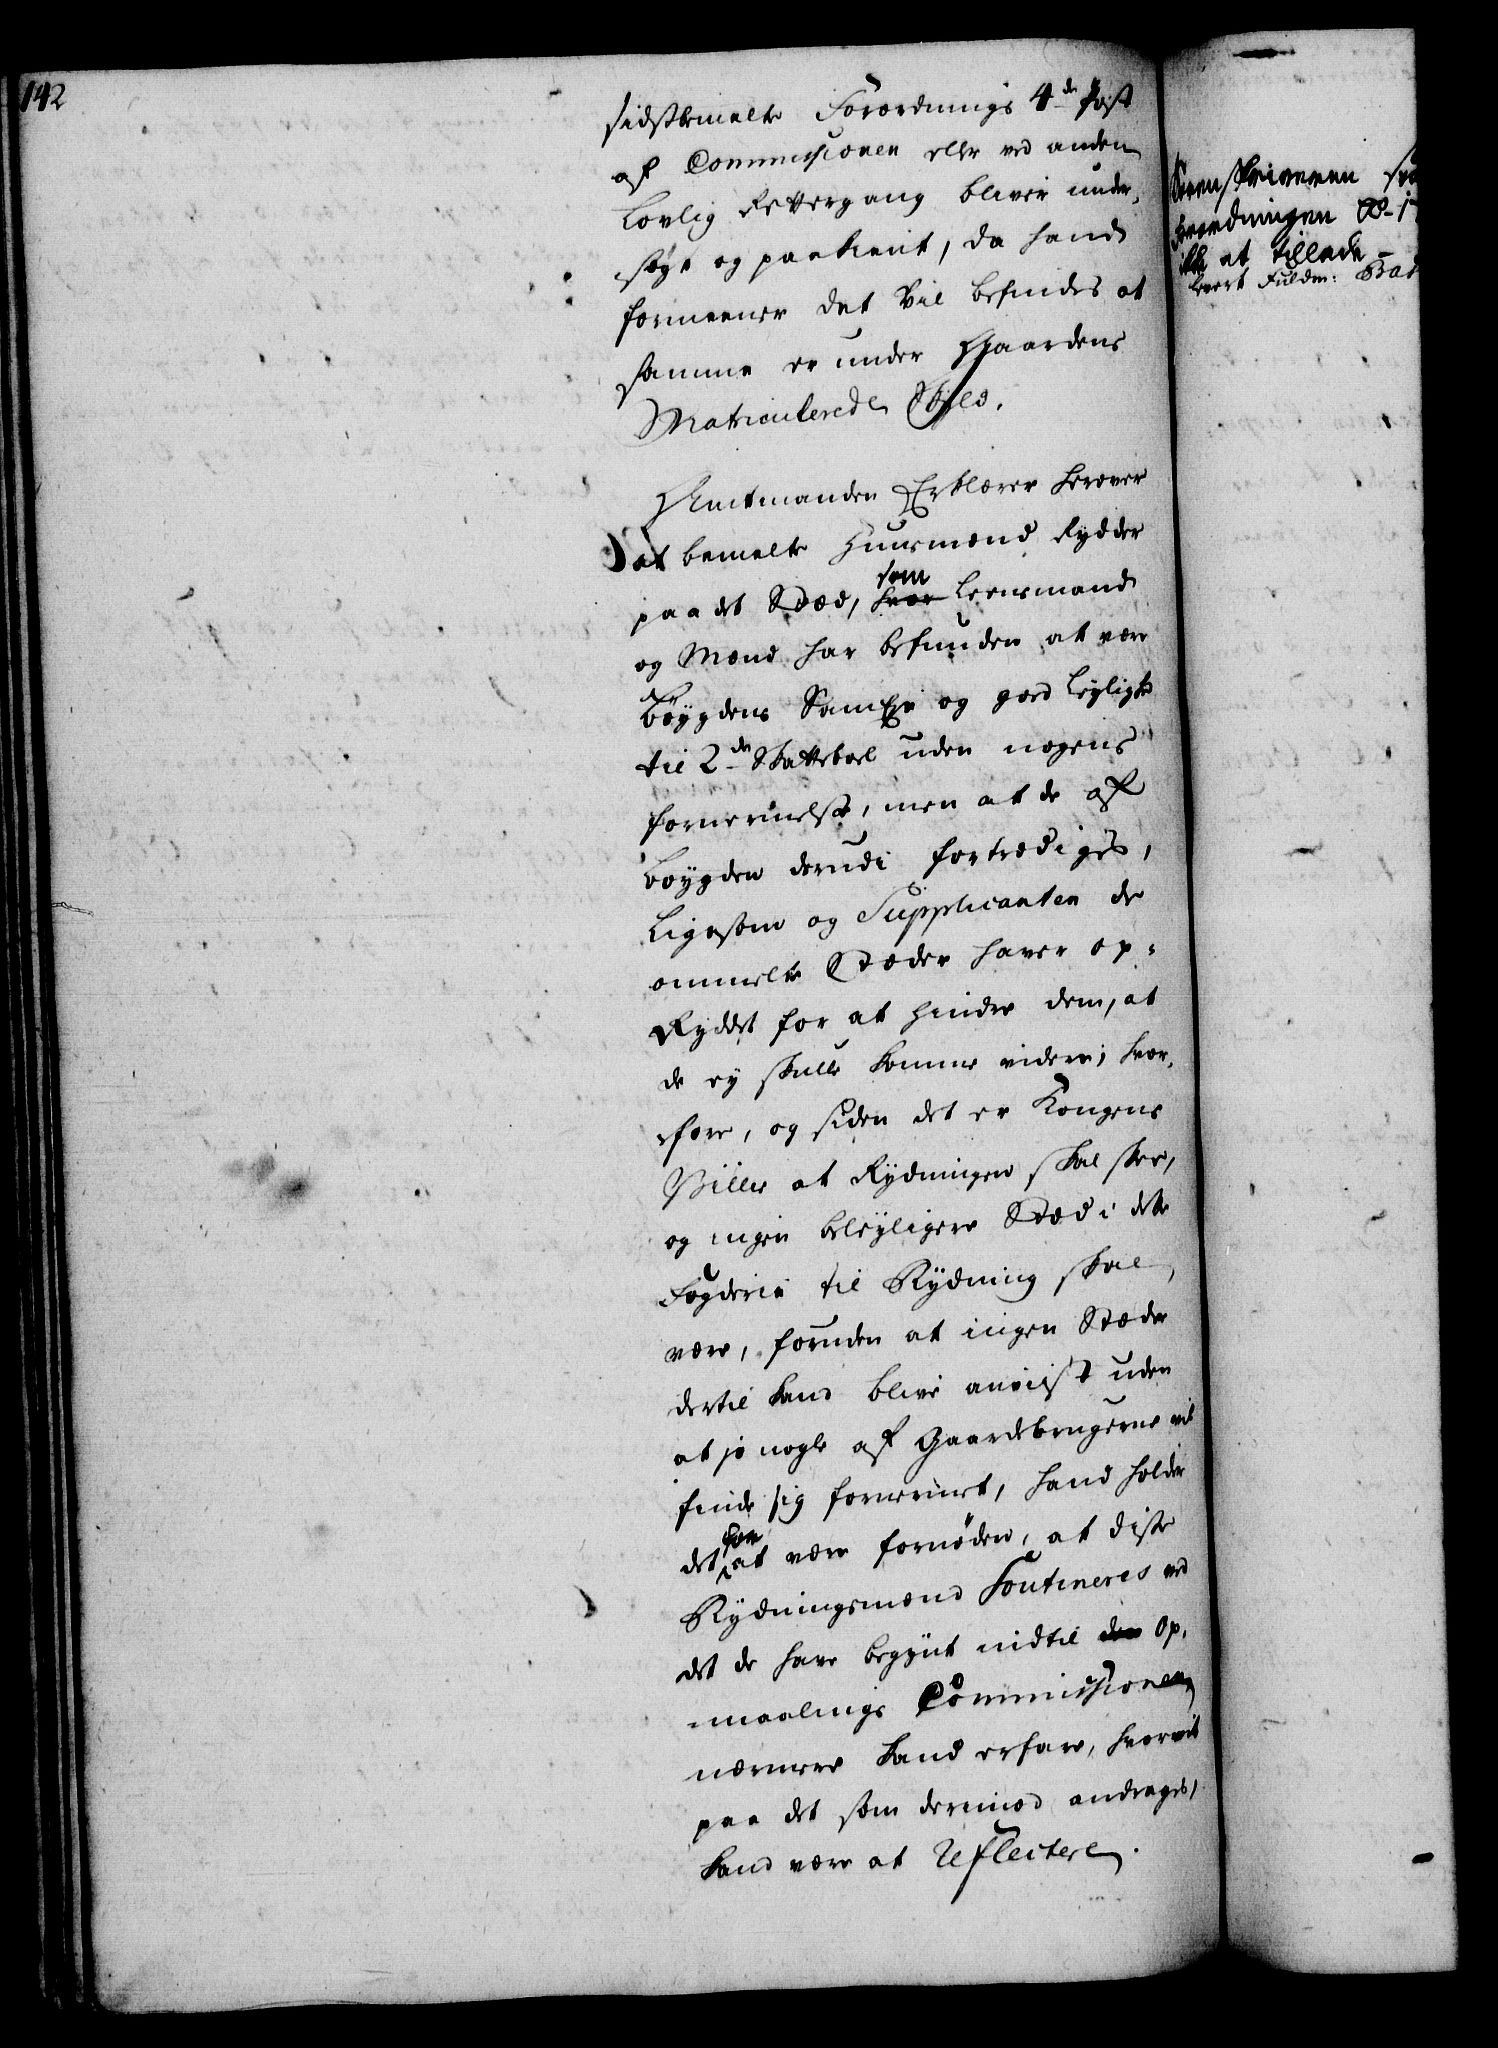 142
sidstbemelte Forordnings 4de Post
af Commissionen eller ved anden
Lovlig Rettergang bliver under-
søgt og paakient, da hand
formeener det vil befindes at
samme er under Gaardens
Matriculerede Skyld.
Amtmanden Erklærer herover
at bemelte Huusmænd Rydder
paa det Stæd, som hvor Leensmand
og Mænd har befunden at være
Bøygdens SamEje og god leylighed
til 2de Skattebøel uden nogens
fornermelse, men at de af
bøygden derudi fortrædiges,
Ligesom og Supplicanten de
ommelte Stæder haver op-
Ryddet for at hindre dem, at
de ey skulle komme videre; hvor-
fore, og siden det er Kongens
Villie at Rydningen skal skee,
og ingen beleyligere Stæd i dette
Fogderie til Rydning skal
være, foruden at ingen Stæder
dertil kand blive anviist uden
at jo nogle af Gaardebrugerne vil
finde sig fornermet, hand holder
det for at være fornøden, at disse
Rydningsmænd Soutineres ved
det de have begynt indtil den Op-
maalings Commissionen
nærmere kand erfare, hvorvit
paa det som derimod andrages,
kand være at reflectere.
Sorenskriveren
Forordningen
ikke at tillade
levert Fuldm: